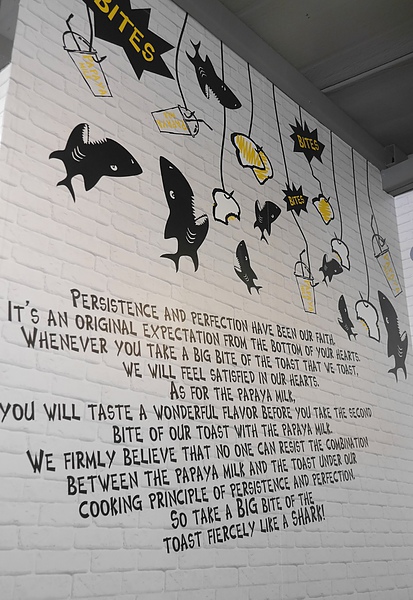 BITES
BITES
BITES
PERSISTENCE AND PERFECTION HAVE BEEN OUR FAITH.
IT'S AN ORIGINAL EXPECTATION FROM THE BOTTOM OF YOUR HEARTS.
WHENEVER YOU TAKE A BIG BITE OF THE TOAST THAT WE TOAST,
WE WILL FEEL SATISFIED IN OUR HEARTS.
AS FOR THE PAPAYA MILK,
YOU WILL TASTE A WONDERFUL FLAVOR BEFORE YOU TAKE THE SECOND
BITE OF OUR TOAST WITH THE PAPAYA MILK.
WE FIRMLY BELIEVE THAT NO ONE CAN RESIST THE COMBINATION
BETWEEN THE PAPAYA MILK AND THE TOAST UNDER OUR
COOKING PRINCIPLE OF PERSISTENCE AND PERFECTION.
SO TAKE A BIG BITE OF THE
TOAST FIERCELY LIKE A SHARK!